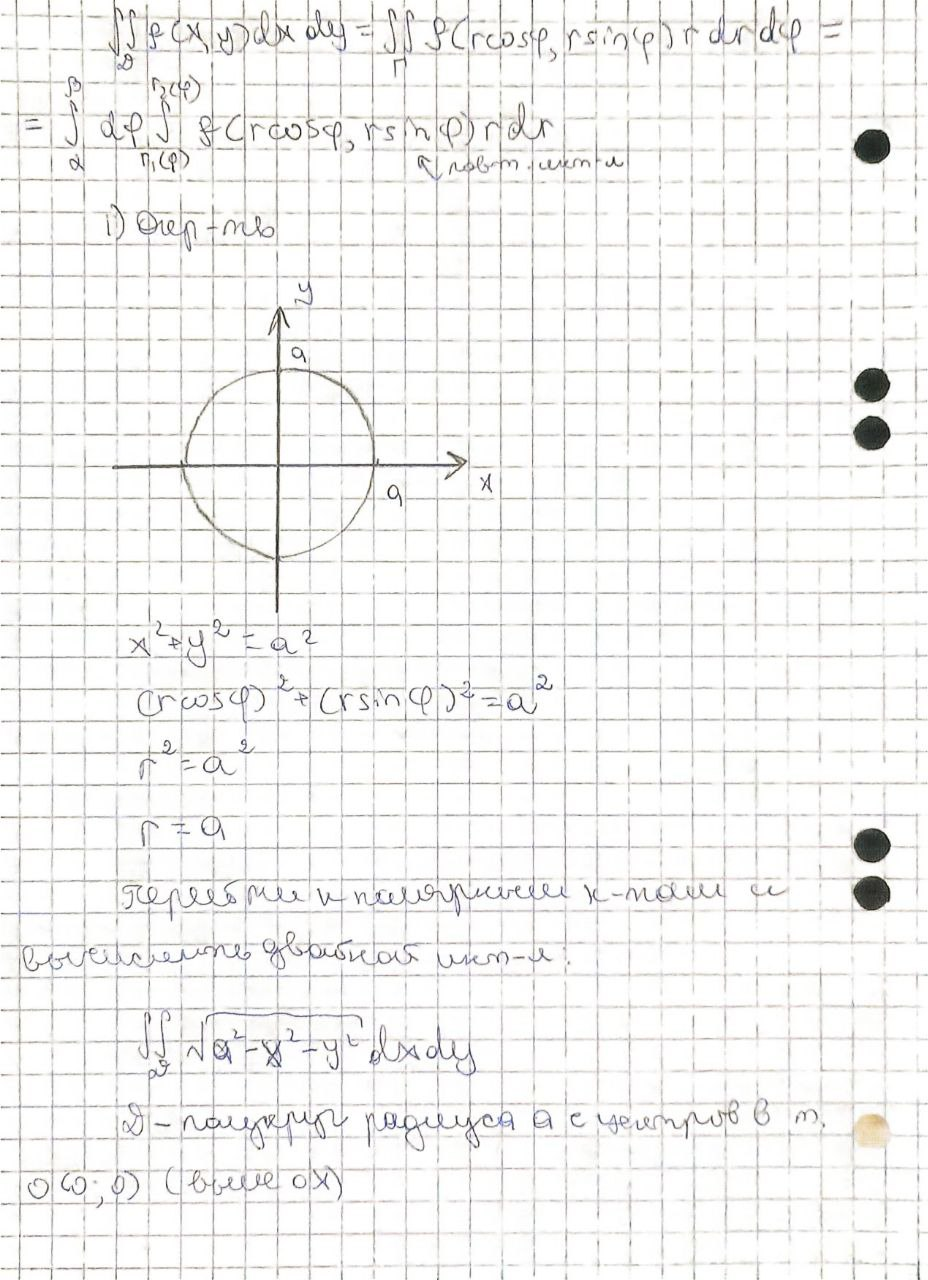 ∬_D f(x,y)dxdy = ∬_Π f(rcosφ, rsinφ) r dr dφ =
= ∫_α^β dφ ∫_{r₁(φ)}^{r₂(φ)} f(rcosφ, rsinφ) rdr
повт. инт-л
1) Окр-ть
y
a
x
a
x² + y² = a²
(rcosφ)² + (rsinφ)² = a²
r² = a²
r = a
Перейти к полярным к-там и
вычислить двойной инт-л:
∬_D √(a²-x²-y²) dxdy
D - полукруг радиуса a с центров в т.
O(0;0) (выше OX)